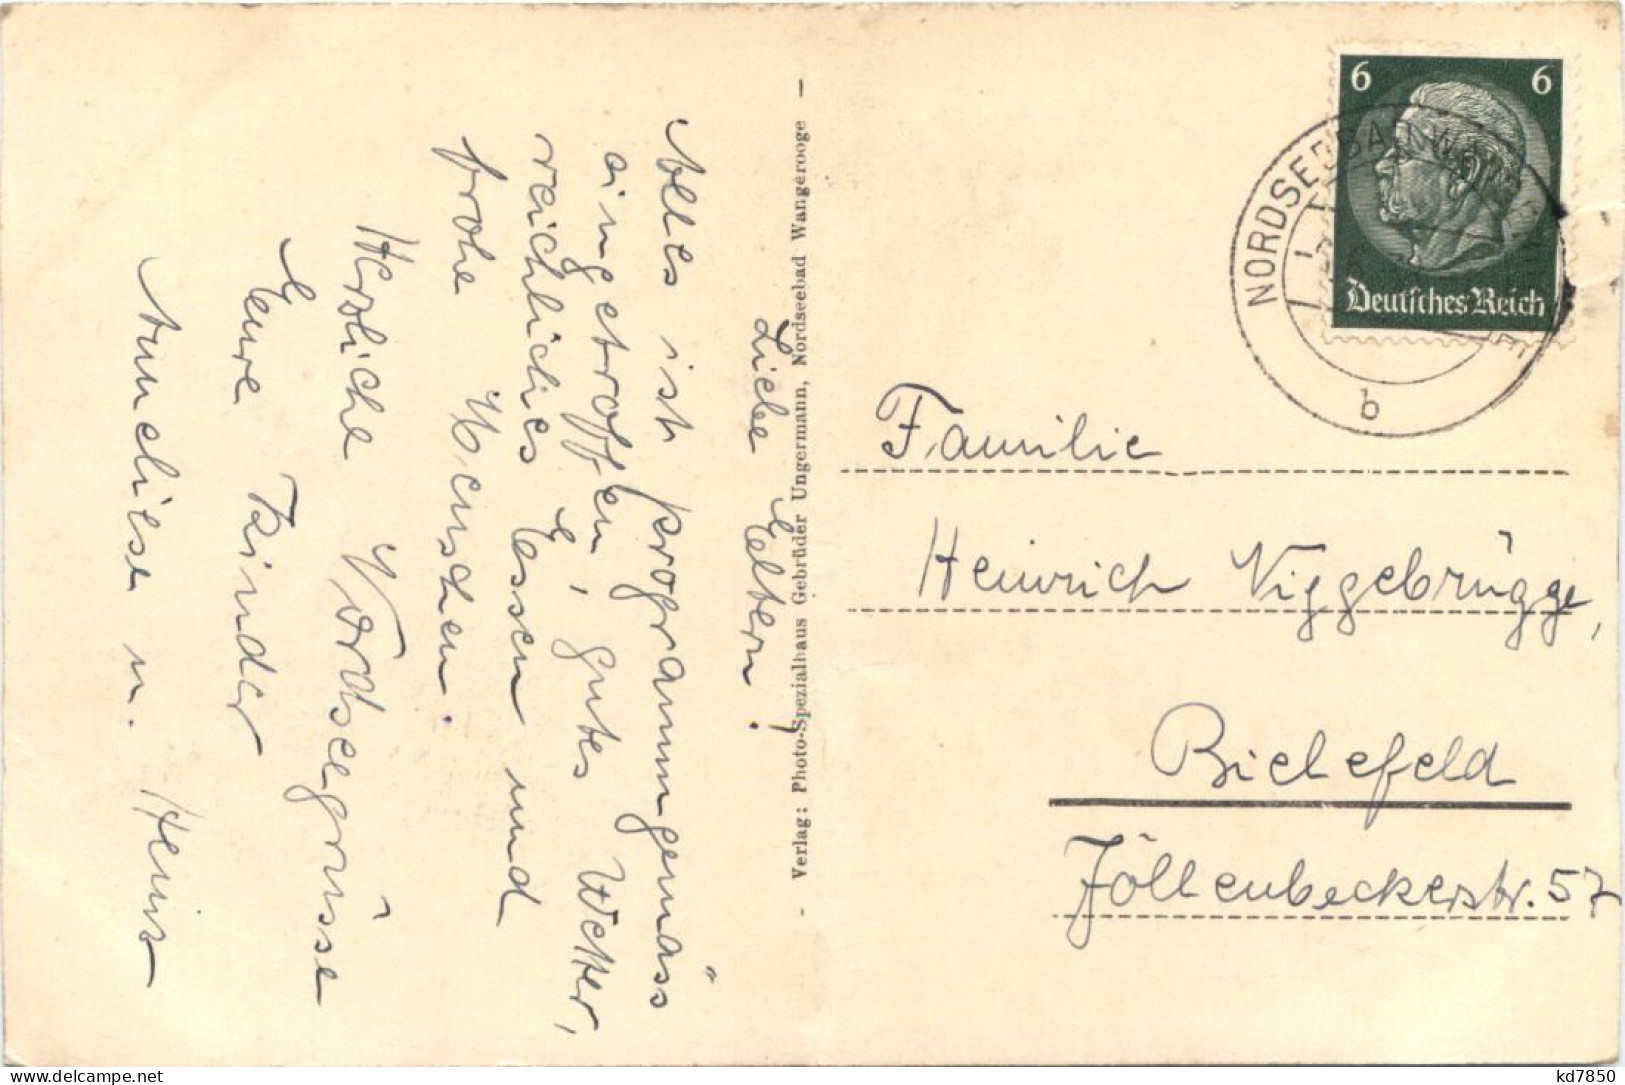 Liebe Eltern!
Alles ist programmgemäss
eingetroffen, gutes Wetter,
reichliches Essen und
frohe Menschen.
Herzliche Nordseegrüsse
Eure Kinder
Anneliese u. Heinz
Verlag: Photo-Spezialhaus Gebrüder Ungermann, Nordseebad Wangerooge
6 6
Deutsches Reich
NORDSEEBAD WANGEROOGE
b
Familie
Heinrich Niggebrügge,
Bielefeld
Jöllenbeckerstr. 57
www.delcampe.net
kd7850